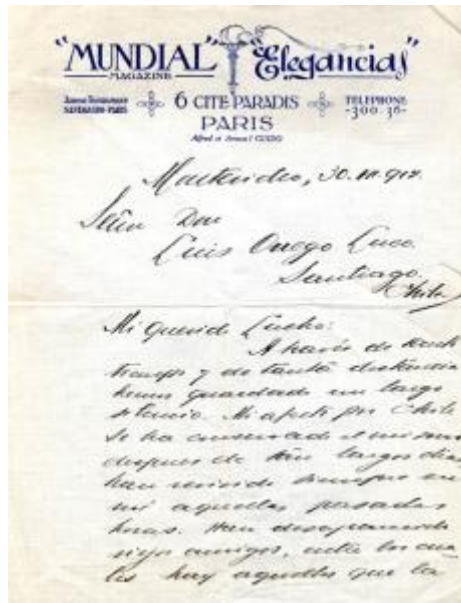 "MUNDIAL" Elegancias"
MAGAZINE
6 CITE PARADIS
TELEPHONE
-300.36-
PARIS
Alfred et Armand GUIDO
Montevideo, 30.
Señor Don
Luis Orrego Luco.
Santiago.
Chile
Mi querido Lucho:
A través de tanto
tiempo y de tanta distancia
hemos guardado un largo
silencio. Mi afecto por Chile
se ha conservado el mismo
despues de tan largos dias
han vivido siempre en
mi aquellas pasadas
horas. Han desaparecido
viejos amigos, entre los cua-
les hay aquellos que la